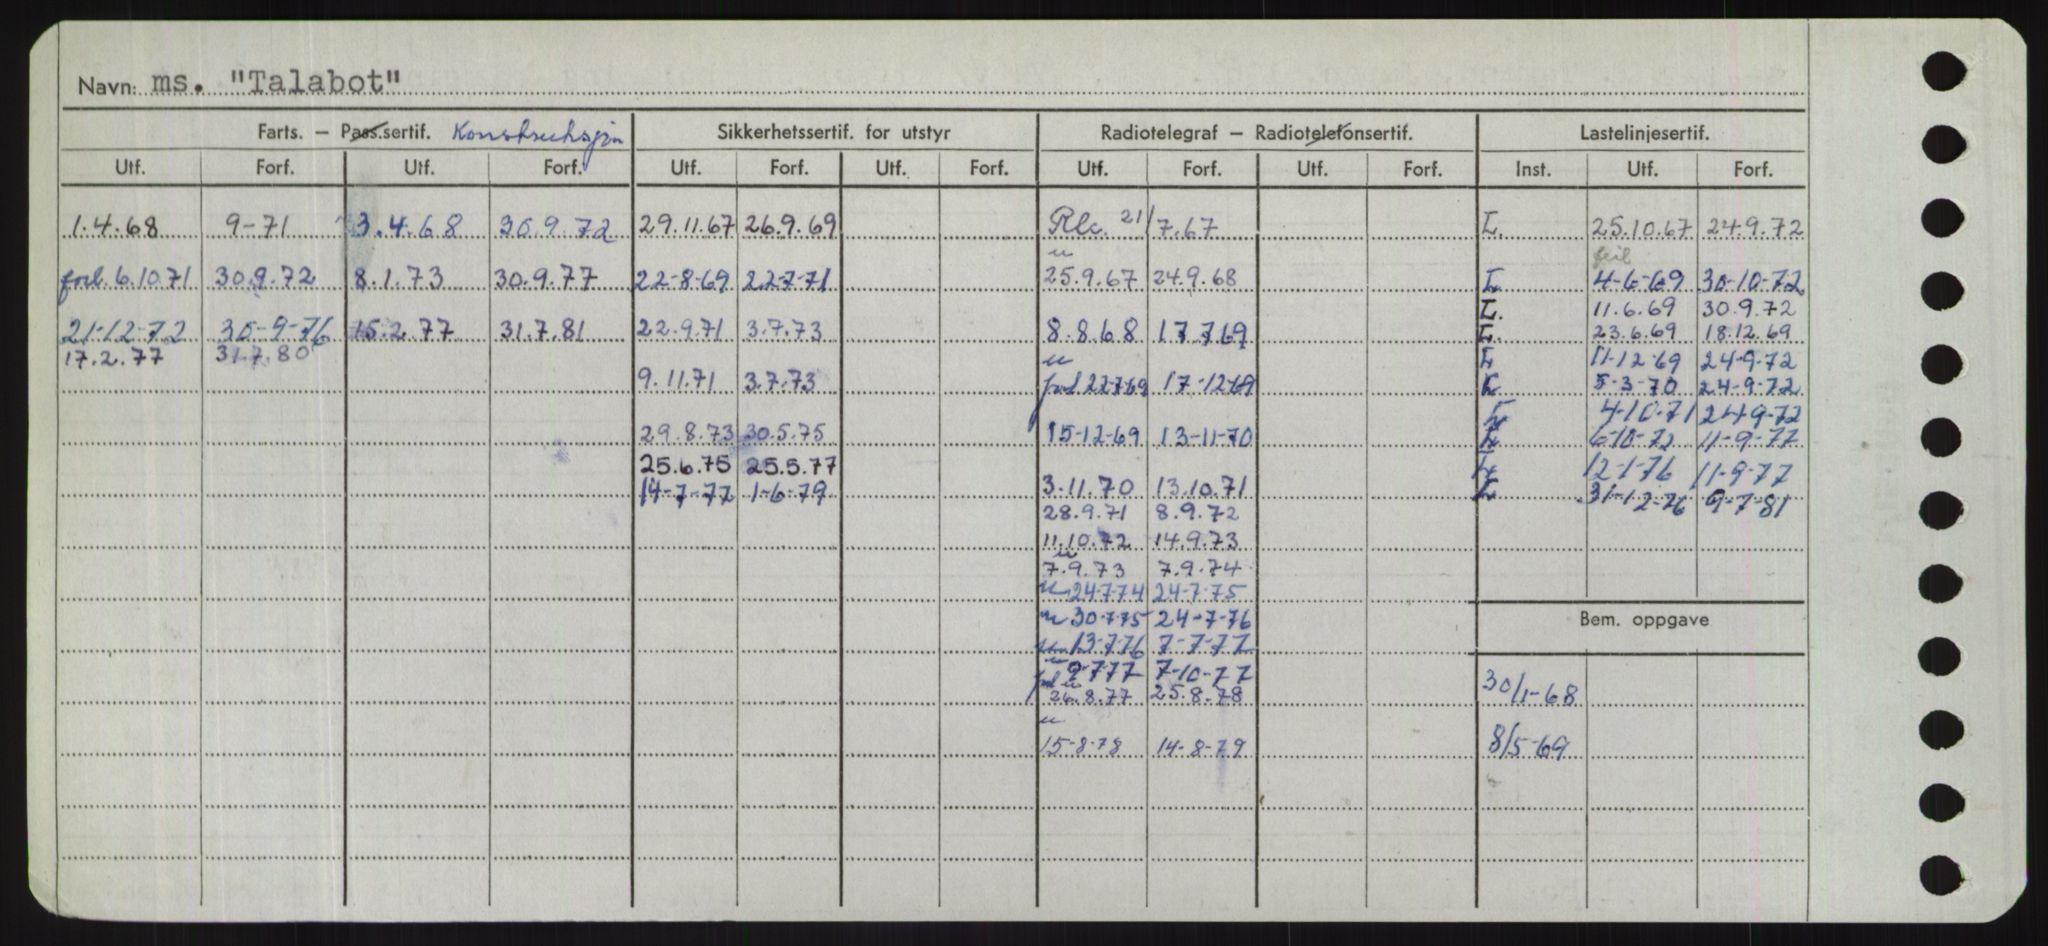 Navn: ms. "Talabot"
Farts. – Pass.sertif. Konstruksjon Sikkerhetssertif. for utstyr Radiotelegraf – Radiotelefonsertif. Lastelinjesertif.
Utf. Forf. Utf. Forf. Utf. Forf. Utf. Forf. Utf. Forf. Utf. Forf. Inst. Utf. Forf.
1.4.68 9-71 3.4.68 30.9.72 29.11.67 26.9.69 Rlc. 21/7.67 L. 25.10.67 24.9.72
u feil
forl. 6.10.71 30.9.72 8.1.73 30.9.77 22-8-69 22-7-71 25.9.67 24.9.68 L 4-6-69 30-10-72
L. 11.6.69 30.9.72
21-12-72 30-9-76 15.2.77 31.7.81 22.9.71 3.7.73 8.8.68 17769 L. 23.6.69 18.12.69
17.2.77 31.7.80 u L 11-12-69 24-9-72
9.11.71 3.7.73 forl 22769 17-12-69 L 5-3-70 24-9-72
L 4-10-71 24-9-72
29.8.73 30.5.75 15-12-69 13-11-70 L 6-10-72 11-9-77
25.6.75 25.5.77 L 12-1-76 11-9-77
14-7-77 1-6-79 3.11.70 13.10.71 L 31-12-76 9-7-81
28.9.71 8.9.72
11.10.72 14.9.73
u
7.9.73 7.9.74
u 24774 24-7-75
u 30-775 24-7-76 Bem. oppgave
u 13-776 7-7-77
u 9-777 7-10-77
forl u 26.8.77 25.8.78 30/1-68
u
15-8-78 14-8-79 8/5-69